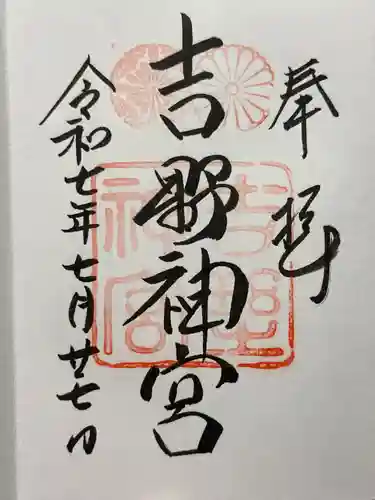 奉拝
吉野神宮
吉野神宮
令和七年七月廿七日